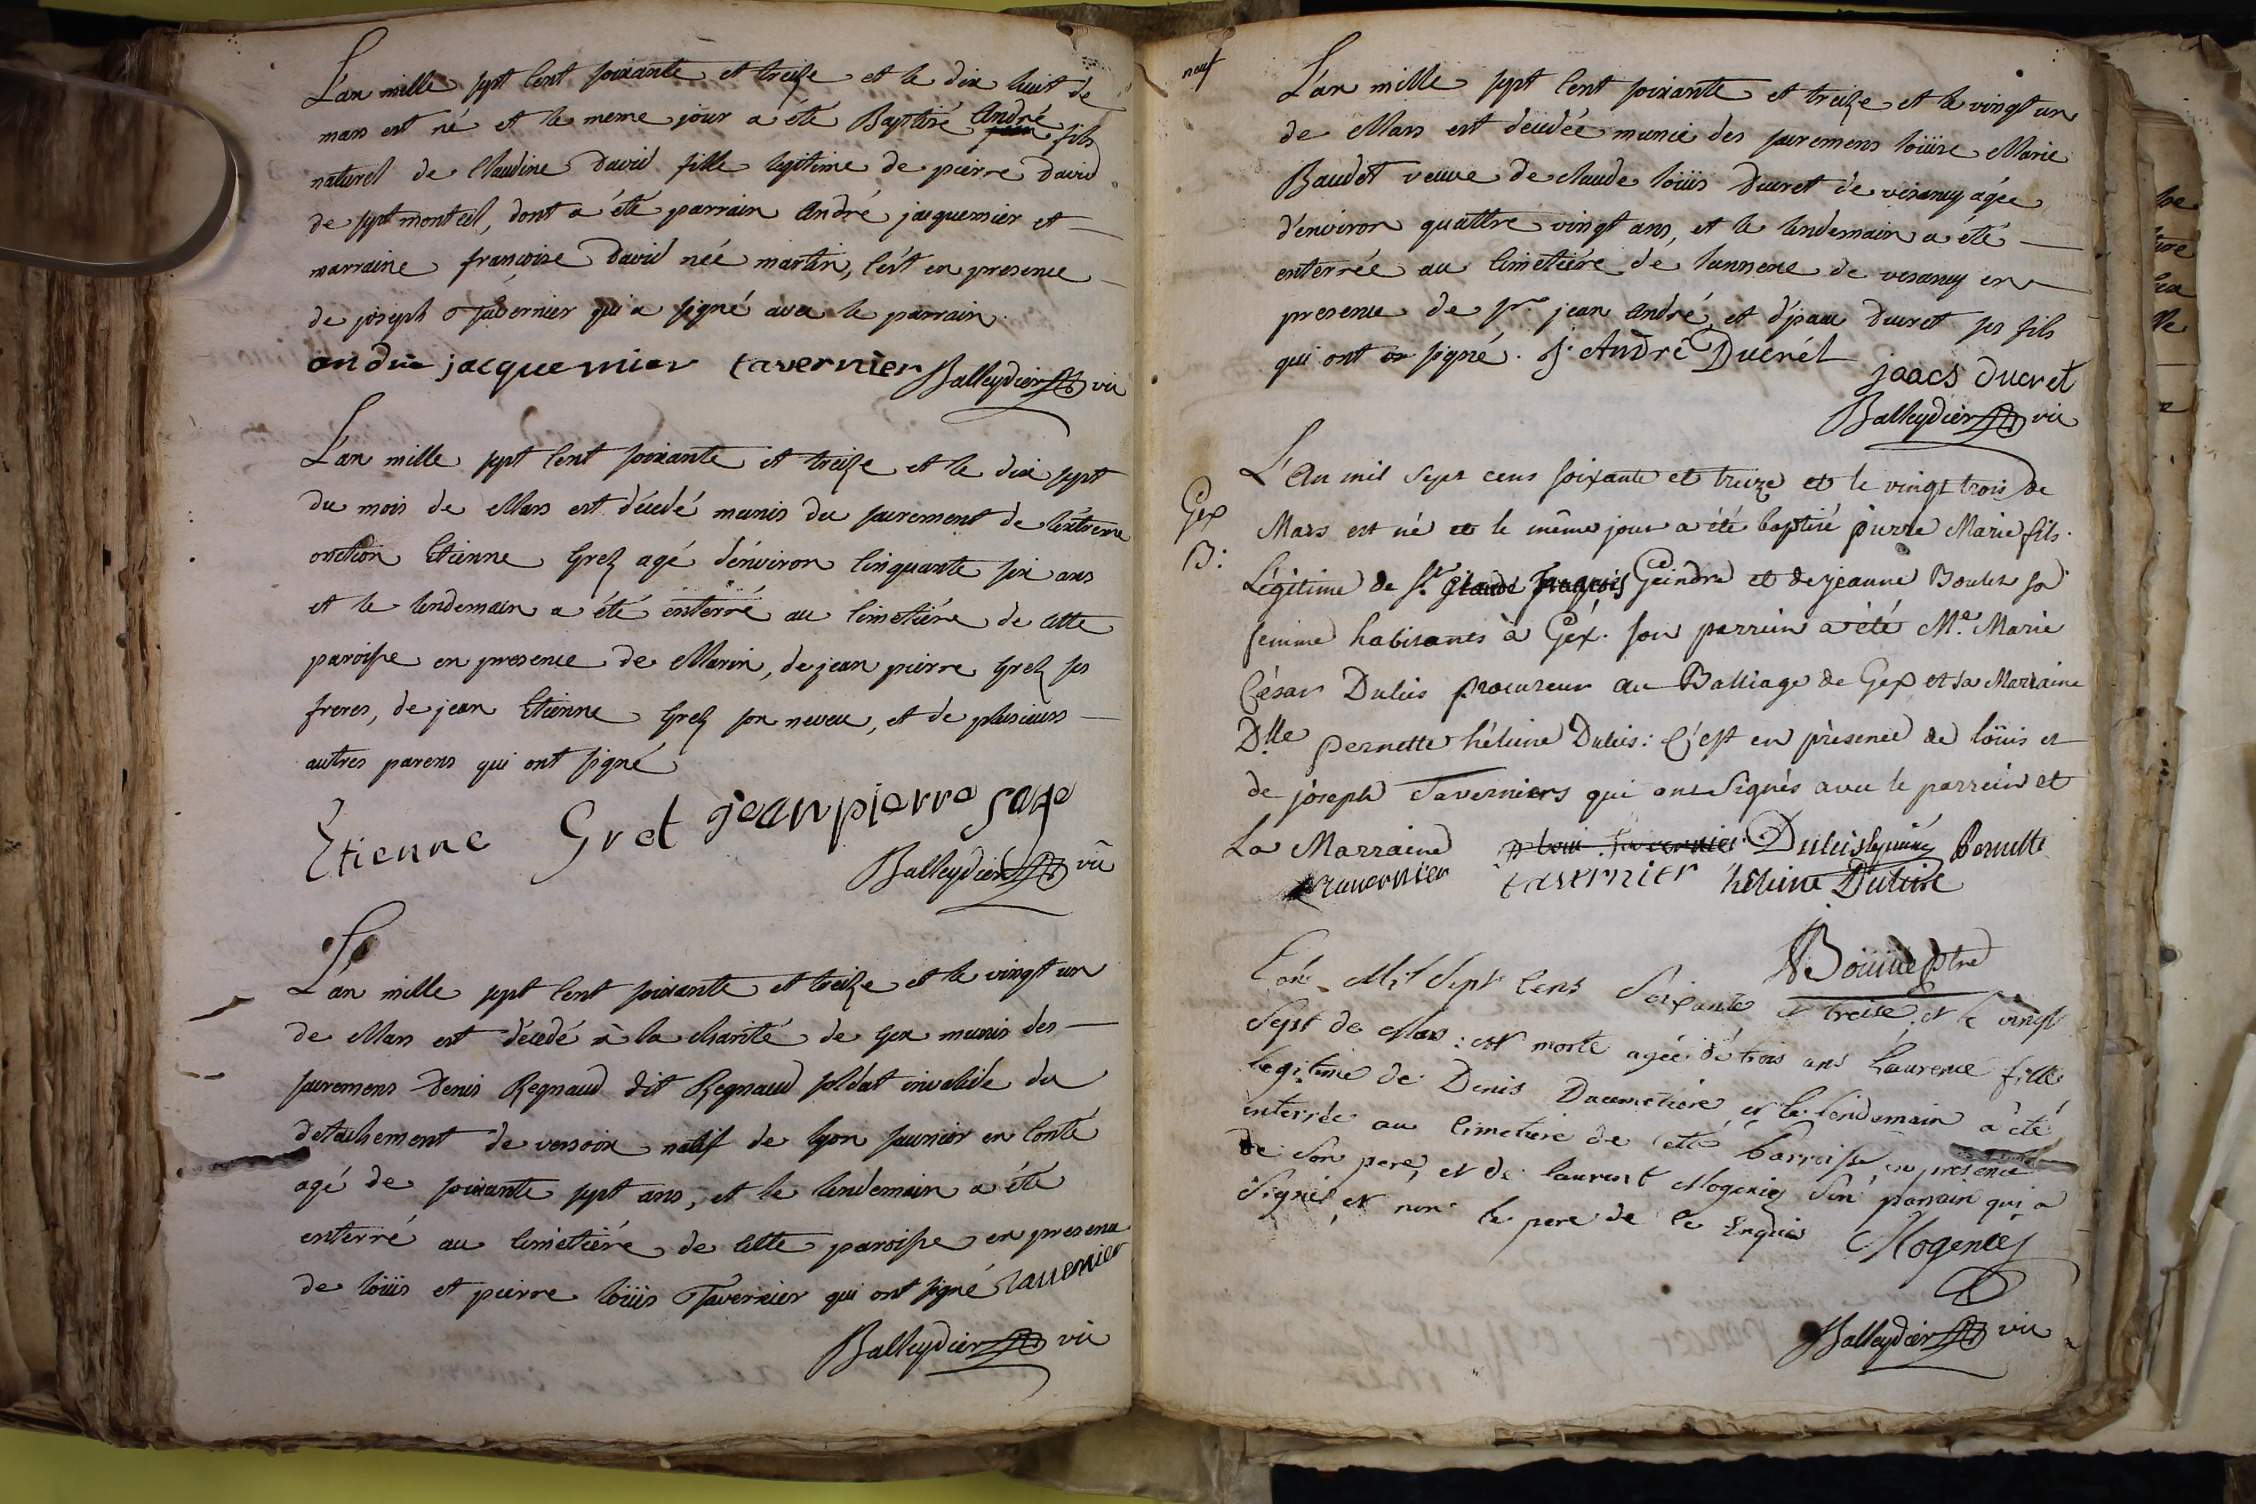 L'an mille sept cent soixante et treize et le dix huit de
mars est né et le meme jour a été Baptisé André fils
naturel de Claudine David fille legitime de pierre David
de sept monteil, dont a été parrain André jacquemier et
marraine francoise David née martin, c'est en presence
de joseph Tavernier qui a signé avec le parrain.
jacquemier tavernier Balleydier vic
L'an mille sept cent soixante et treize et le dix sept
du mois de Mars est décedé munis du sacrement de l'extreme
onction Etienne Grez agé d'environ cinquante six ans
et le lendemain a été enterré au cimetiére de cette
paroisse en presence de Marin, de jean pierre Grez ses
freres, de jean Etienne Grez son neveu, et de plusieurs
autres parens qui ont signé
Etienne Gret jean pierre
Balleydier vic
L'an mille sept cent soixante et treize et le vingt un
de Mars est décedé à la charité de Gex munis des
sacremens Denis Regnaud dit Regnaud soldat invalide du
detachement de versoix natif de lyon saunior en Conté
agé de soixante sept ans, et le lendemain a été
enterré au cimetiére de cette paroisse en presence
de loüis et pierre loüis Tavernier qui ont signé Tavernier
Balleydier vic
neuf
L'an mille sept cent soixante et treize et le vingt un
de Mars est decedée munie des sacremens loüise Marie
Baudet veuve de claude loüis Ducret de vesancy agée
d'environ quattre vingt ans, et le lendemain a été
enterrée au cimetiére de l'annexe de vesancy en
presence de sr. jean André et d'jsaac Ducret ses fils
qui ont signé. J. André Ducrét
jaacs ducret
Balleydier vic
L'An mil sept cens soixante et treize et le vingt trois de
Gex
Mars est né et le même jour a été baptisé pierre Marie fils
B:
Légitime de Sr. Claude François Geindre et de jeanne Boulet sa
femme habitants à Gex. son parrein a été Me. Marie
César Dulcis procureur au Balliage de Gex et sa Marraine
Dlle pernette héleine Dulcis: C'est en présence de loüis et
de joseph Taverniers qui ont signés avec le parrein et
La Marraine Pernette
tavernier héleine
Bouille ptre
L'an Mil Sept Cens Soixante et treise et le vingt
Sept de Mars: est morte agée de trois ans Laurence fille
legitime de Denis Ducimetiere et le lendemain a été
enterrée au Cimetiere de cette Parroisse en presence
de Son pere, et de laurent Mogeniez Son parrain qui a
Signé et non le pere de ce Enquis Mogeniez
Balleydier vic